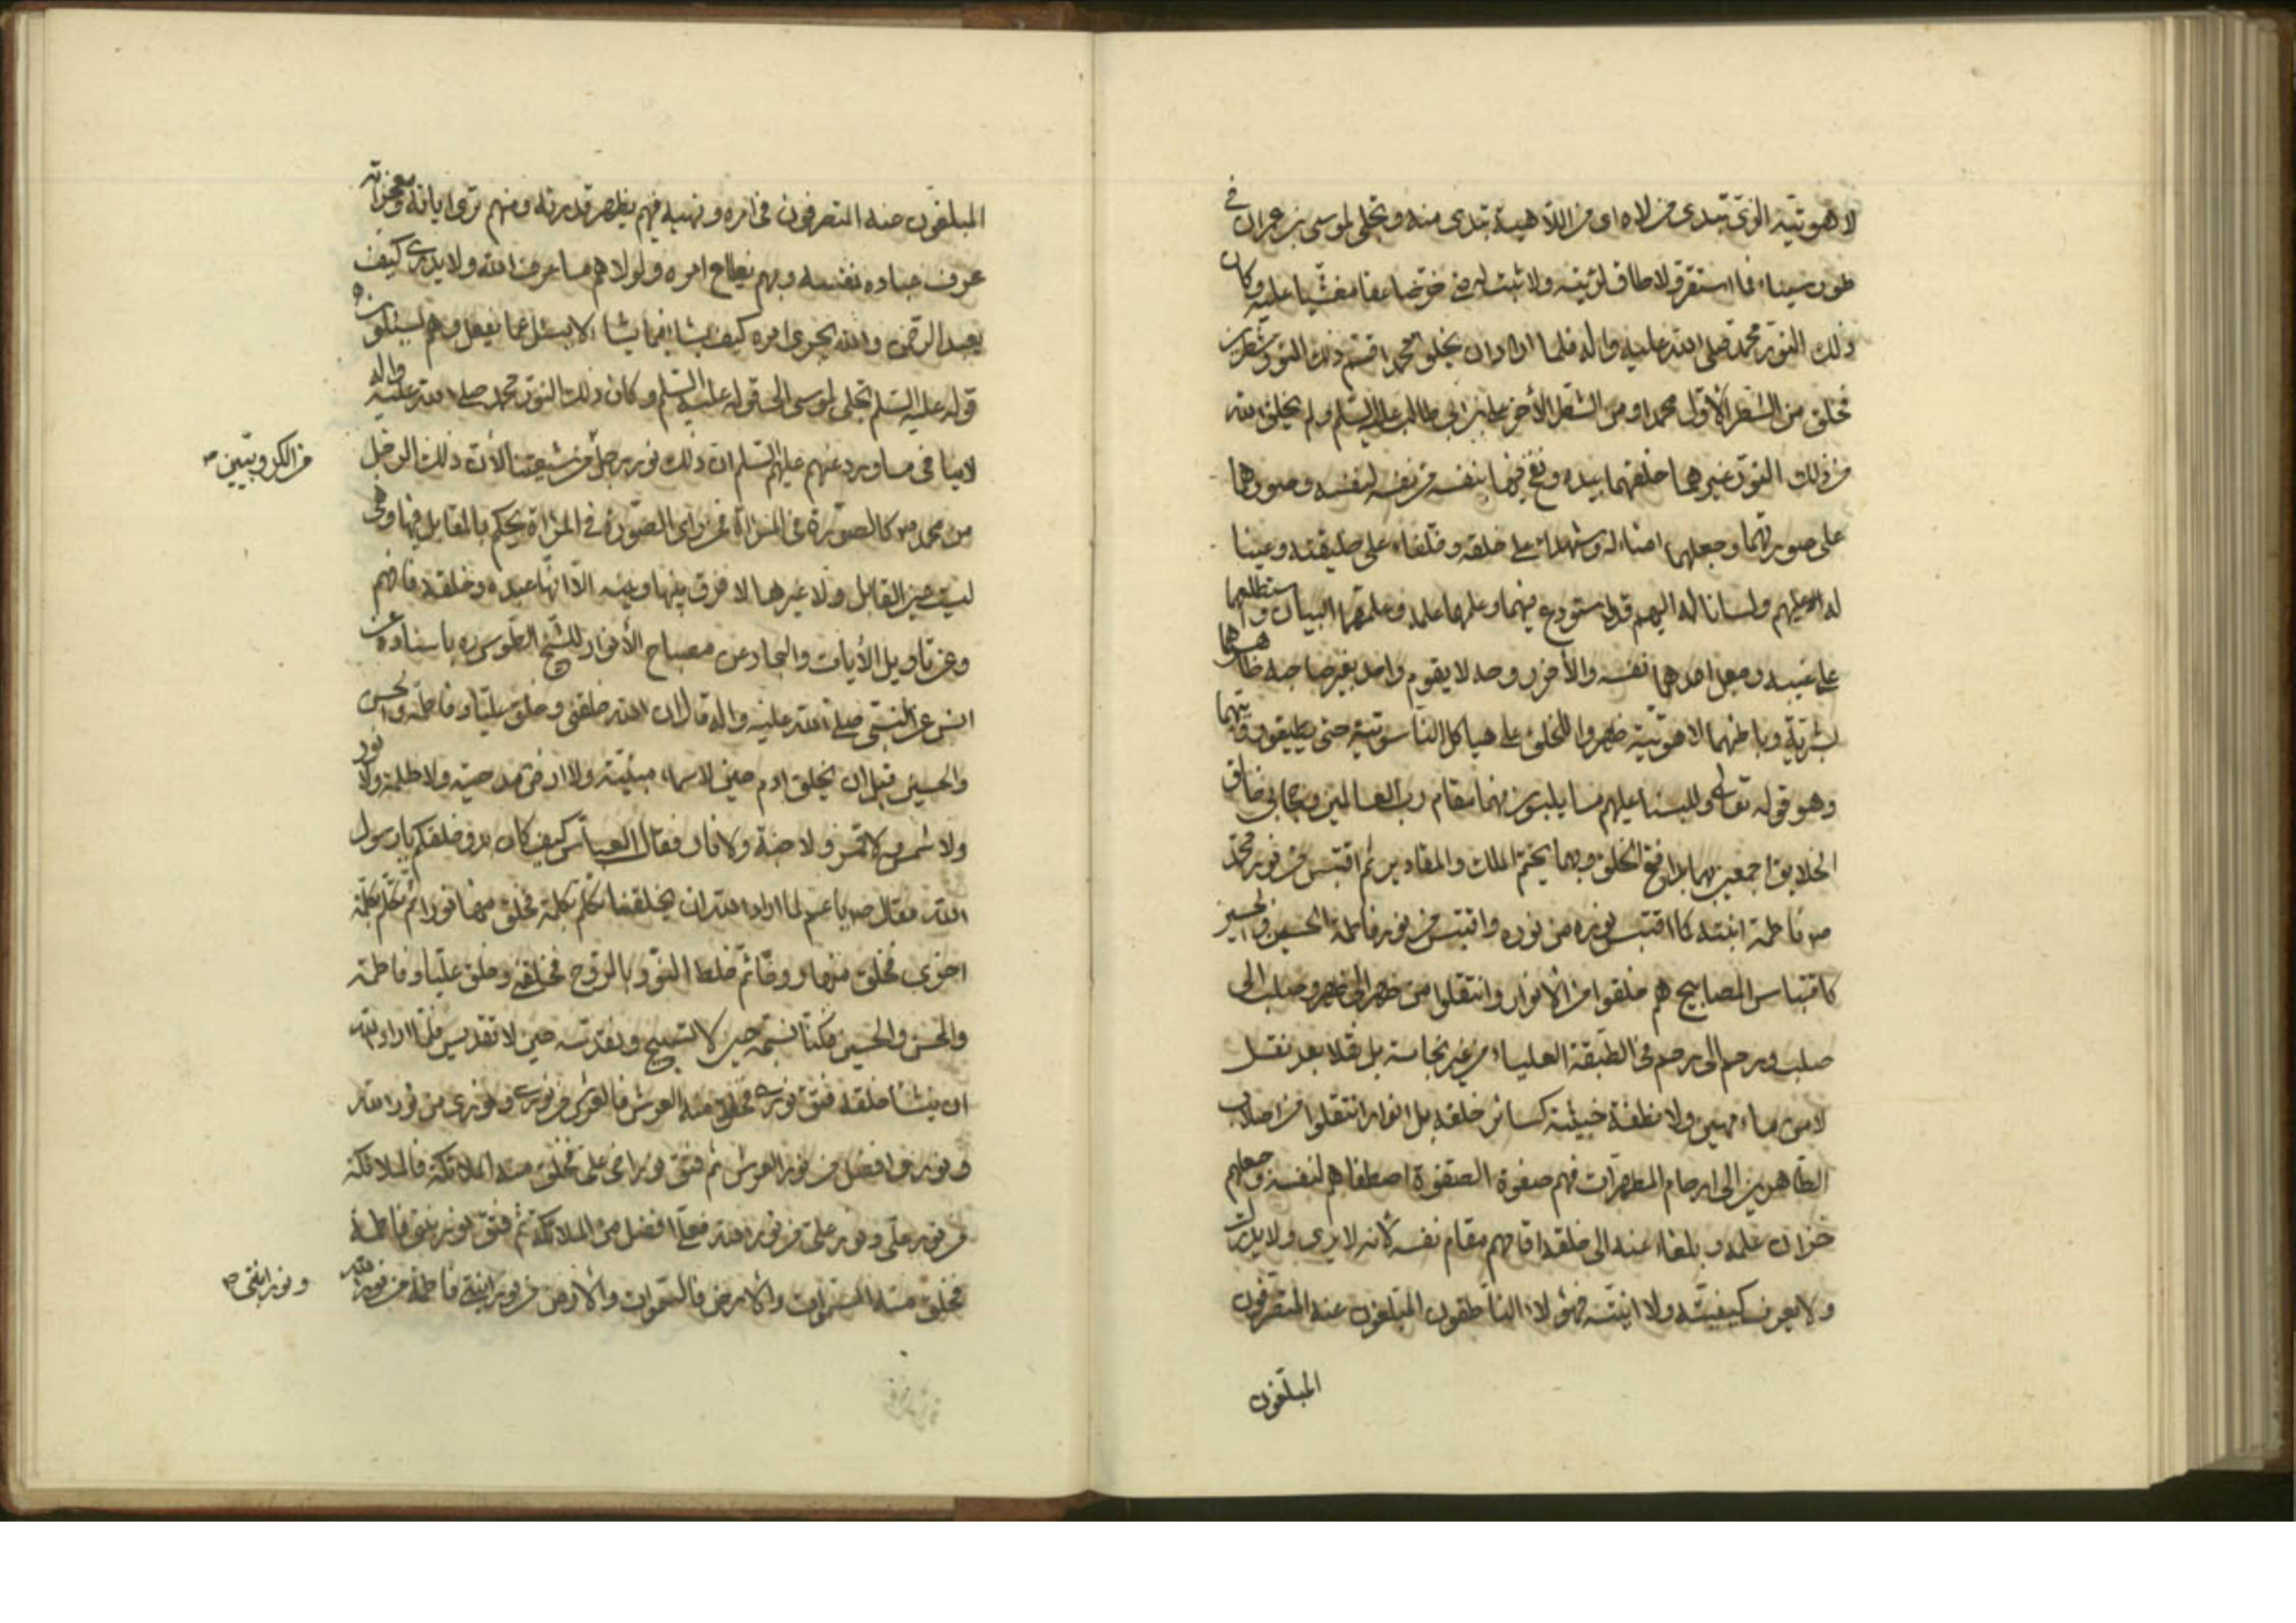 لاهوتيته الذي تبدى من لاه اى من اللاهية تبدى منه وتجلى لموسى بن عمران فى
طور سيناء فما استقر ولا طاق لرؤيته ولا ثبت له حتى خر صاعقا مغشيا عليه وكان
ذلك النور محمد صلى الله عليه واله فلما اراد ان يخلق محمدا قسم ذلك النور شطرين
فخلق من الشطر الأول محمدا ومن الشطر الأخر على بن ابى طالب عليه السلم ولم يخلق الله
من ذلك النور غيرهما خلقهما بيده ونفخ فيهما بنفسه من نفسه لنفسه وصورهما
على صورتهما وجعلهما امناء له وشهداء على خلقه وخلفاء على خليقته وعينا
له عليهم ولسانا له اليهم قد استودع فيهما علمه وعلمهما البيان واستطلعهما
على غيبه وجعل احدهما نفسه والأخر روحه لا يقوم واحد بغير صاحبه ظاهرهما
بشرية وباطنهما لاهوتية ظهروا للخلق على هياكل الناسوتية حتى يطيقون رؤيتهما
وهو قوله تعالى وللبسنا عليهم ما يلبسون فهما مقام رب العالمين وحجابى خالق
الخلايق اجمعين بهما بدا فتح الخلق وبهما يختم الملك والمقادير ثم اقتبس من نور محمد
ص فاطمة ابنته كما اقتبس نوره من نوره واقتبس من نور فاطمة الحسن والحسين
كاقتباس المصابيح هم خلقوا من الأنوار وانتقلوا من ظهر الى ظهر وصلب الى
صلب ورحم الى رحم فى الطبقة العلياء من غير نجاسة بل نقلا بعد نقل
لا من ماء مهين ولا نطفة خبيثة كسائر خلقه بل انوار انتقلوا من اصلاب
الطاهرين الى ارحام المطهرات فهم صفوة الصفوة اصطفاهم لنفسه وجعلهم
خزان علمه وبلغاء عنه الى خلقه اقامهم مقام نفسه لأنه لا يرى ولا يدرك
ولا يعرف كيفيته ولا اينيته فهؤلاء الناطقون المبلغون عنه المتصرفون
المبلغون
المبلغون عنه المتصرفون فى امره ونهيه فبهم يظهر قدرته ومنهم ترى اياته ومعجزاته
عرف عباده نفسه وبهم يطاع امره ولولاهم ما عرف الله ولا يدرى كيف
يعبد الرحمن والله يجرى امره كيف يشاء فيما يشاء لا يسئل عما يفعل وهم يسئلون ه
قوله عليه السلم تجلى لموسى الى قوله عليه السلم وكان ذلك النور محمد صلى الله عليه واله
لا ينافى ما ورد عنهم عليهم السلم ان ذلك نور رجل من شيعتنا لأن ذلك الرجل
من الكروبيين ص
من محمد ص كالصورة فى المراة فمن راى الصورة فى المراة يحكم بالمقابل فيها وهى
ليست عين المقابل ولا غيرها لا فرق بينها وبينه الا انها عبده وخلقه فافهم
وعن تاويل الأيات والبحار عن مصباح الأنوار للشيخ الطوسى ره باسناده عن
انس عن النبى صلى الله عليه واله قال ان الله خلقنى وخلق عليا وفاطمة والحسن
والحسين قبل ان يخلق ادم حين لا سماء مبنية ولا ارض مدحية ولا ظلمة ولا نور
ولا شمس ولا قمر ولا جنة ولا نار فقال العباس كيف كان بدو خلقكم يا رسول
الله فقال ص يا عم لما اراد الله ان يخلقنا تكلم بكلمة فخلق منها نورا ثم تكلم بكلمة
اخرى فخلق منها روحا ثم خلط النور بالروح فخلقنى وخلق عليا وفاطمة
والحسن والحسين فكنا نسبحه حين لا تسبيح ونقدسه حين لا تقديس فلما اراد الله
ان ينشا خلقه فتق نورى فخلق منه العرش فالعرش من نورى ونورى من نور الله
ونورى افضل من نور العرش ثم فتق نور اخى على فخلق منه الملائكة فالملائكة
من نور على ونور على من نور الله فعلى افضل من الملائكة ثم فتق نور بنتى فاطمة
فخلق منه السموات والأرض فالسموات والأرض من نور ابنتى فاطمة من نور الله
ونور ابنتى ص